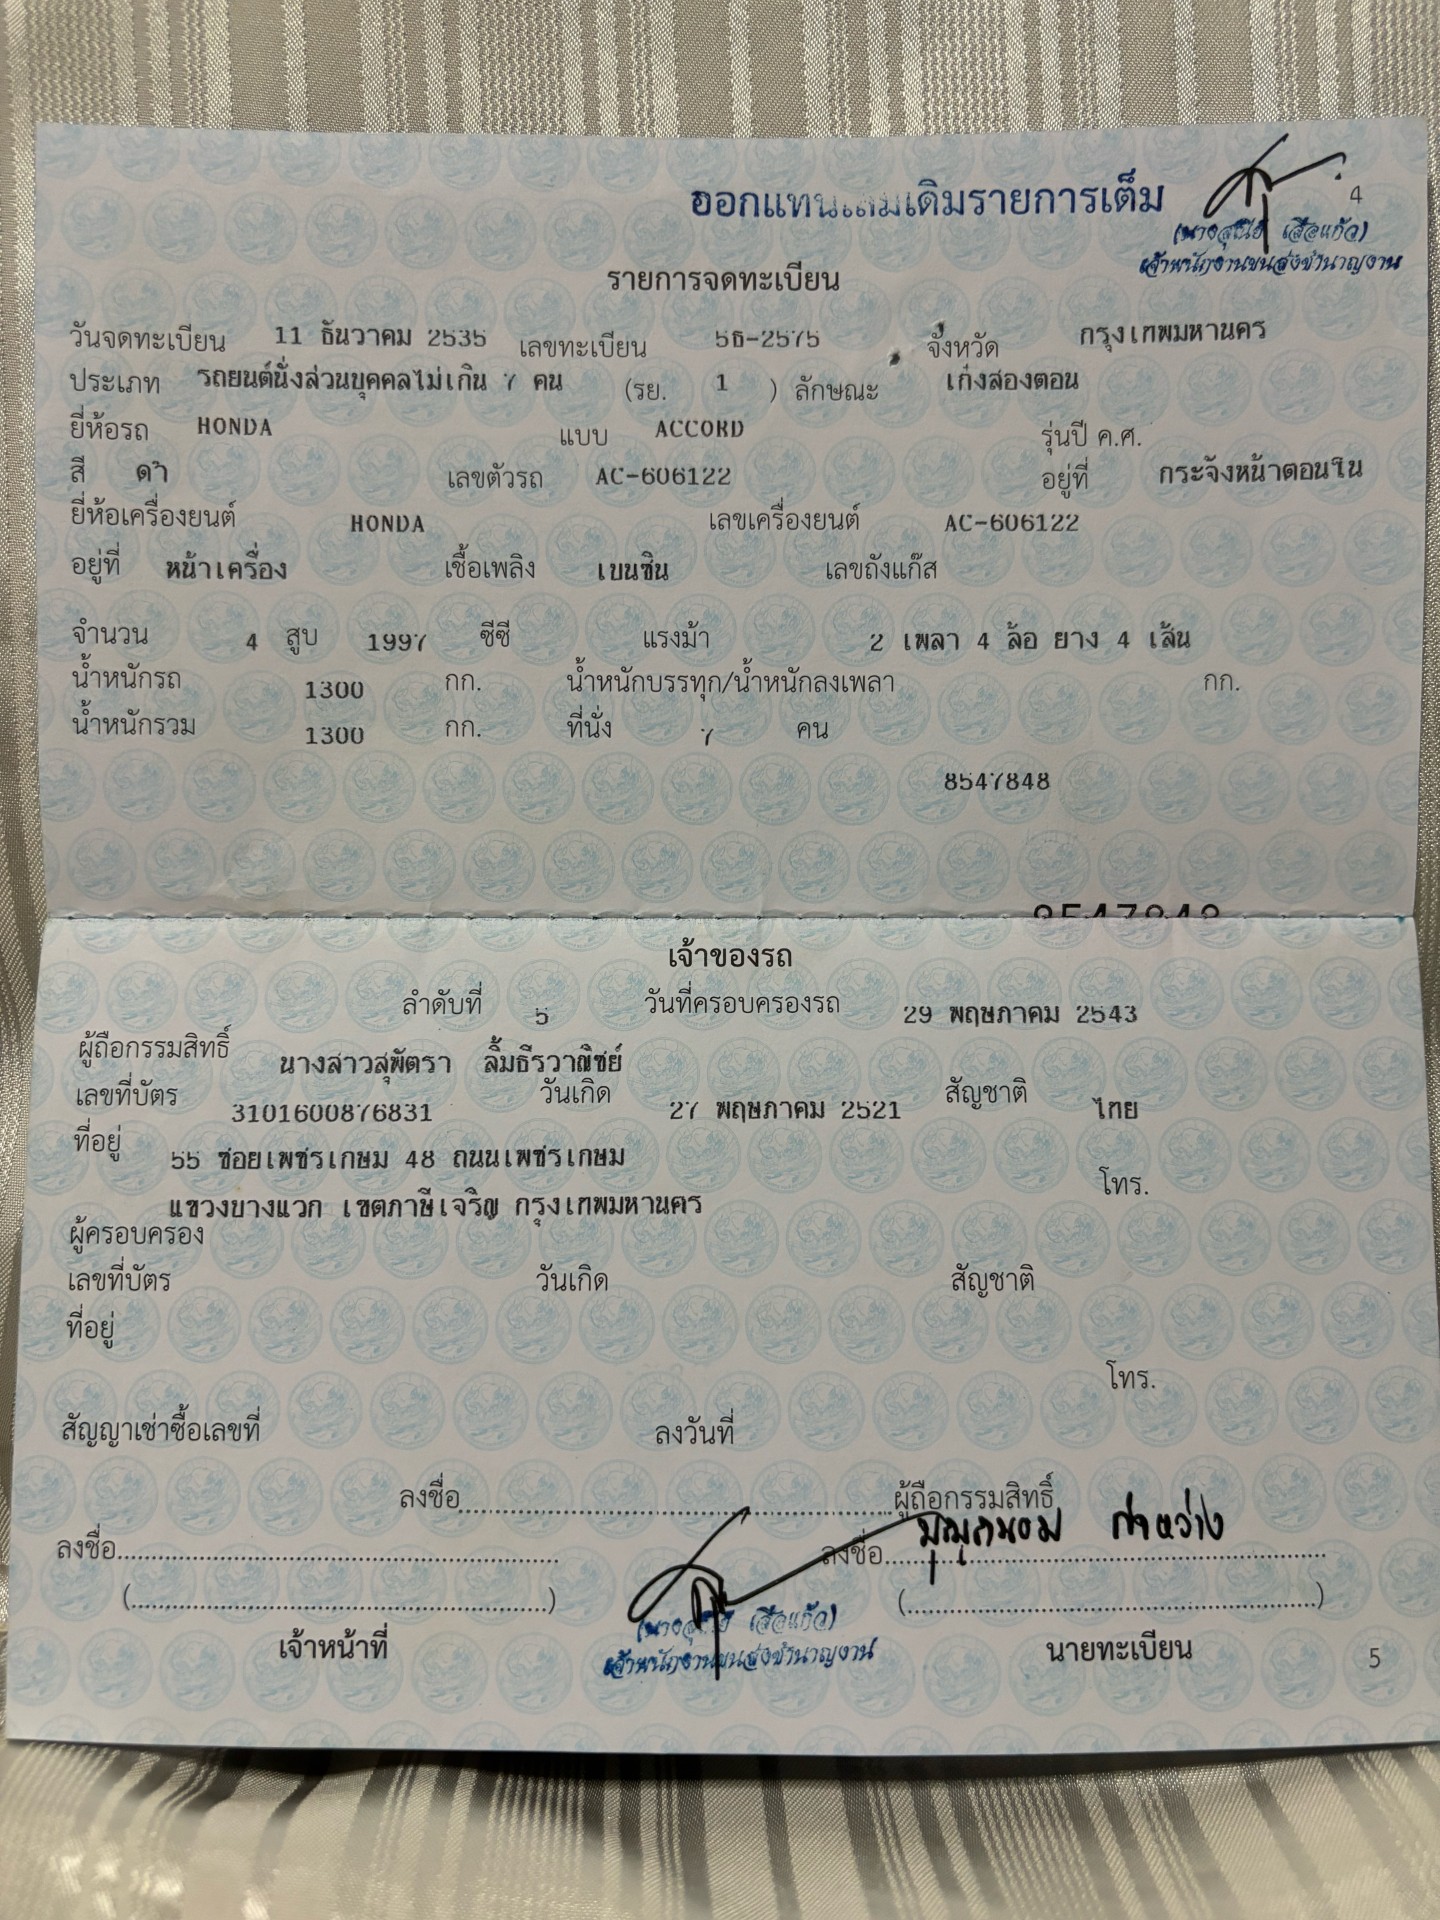 ออกแทนเล่มเดิมรายการเต็ม
4
(นางสุณีย์ เสือแก้ว)
เจ้าพนักงานขนส่งชำนาญงาน
รายการจดทะเบียน
วันจดทะเบียน 11 ธันวาคม 2535 เลขทะเบียน 5ธ-2575 จังหวัด กรุงเทพมหานคร
ประเภท รถยนต์นั่งส่วนบุคคลไม่เกิน 7 คน (รย. 1 ) ลักษณะ เก๋งสองตอน
ยี่ห้อรถ HONDA แบบ ACCORD รุ่นปี ค.ศ.
สี ดำ เลขตัวรถ AC-606122 อยู่ที่ กระจังหน้าตอนใน
ยี่ห้อเครื่องยนต์ HONDA เลขเครื่องยนต์ AC-606122
อยู่ที่ หน้าเครื่อง เชื้อเพลิง เบนซิน เลขถังแก๊ส
จำนวน 4 สูบ 1997 ซีซี แรงม้า 2 เพลา 4 ล้อ ยาง 4 เส้น
น้ำหนักรถ 1300 กก. น้ำหนักบรรทุก/น้ำหนักลงเพลา กก.
น้ำหนักรวม 1300 กก. ที่นั่ง 7 คน
8547848
8547848
เจ้าของรถ
ลำดับที่ 5 วันที่ครอบครองรถ 29 พฤษภาคม 2543
ผู้ถือกรรมสิทธิ์ นางสาวสุพัตรา ลิ้มธีรวาณิชย์
เลขที่บัตร 3101600876831 วันเกิด 27 พฤษภาคม 2521 สัญชาติ ไทย
ที่อยู่ 55 ซอยเพชรเกษม 48 ถนนเพชรเกษม
แขวงบางแวก เขตภาษีเจริญ กรุงเทพมหานคร โทร.
ผู้ครอบครอง
เลขที่บัตร วันเกิด สัญชาติ
ที่อยู่
โทร.
สัญญาเช่าซื้อเลขที่ ลงวันที่
ลงชื่อ ผู้ถือกรรมสิทธิ์
ลงชื่อ ลงชื่อ
(นางสุณีย์ เสือแก้ว)
เจ้าพนักงานขนส่งชำนาญงาน
เจ้าหน้าที่ นายทะเบียน 5